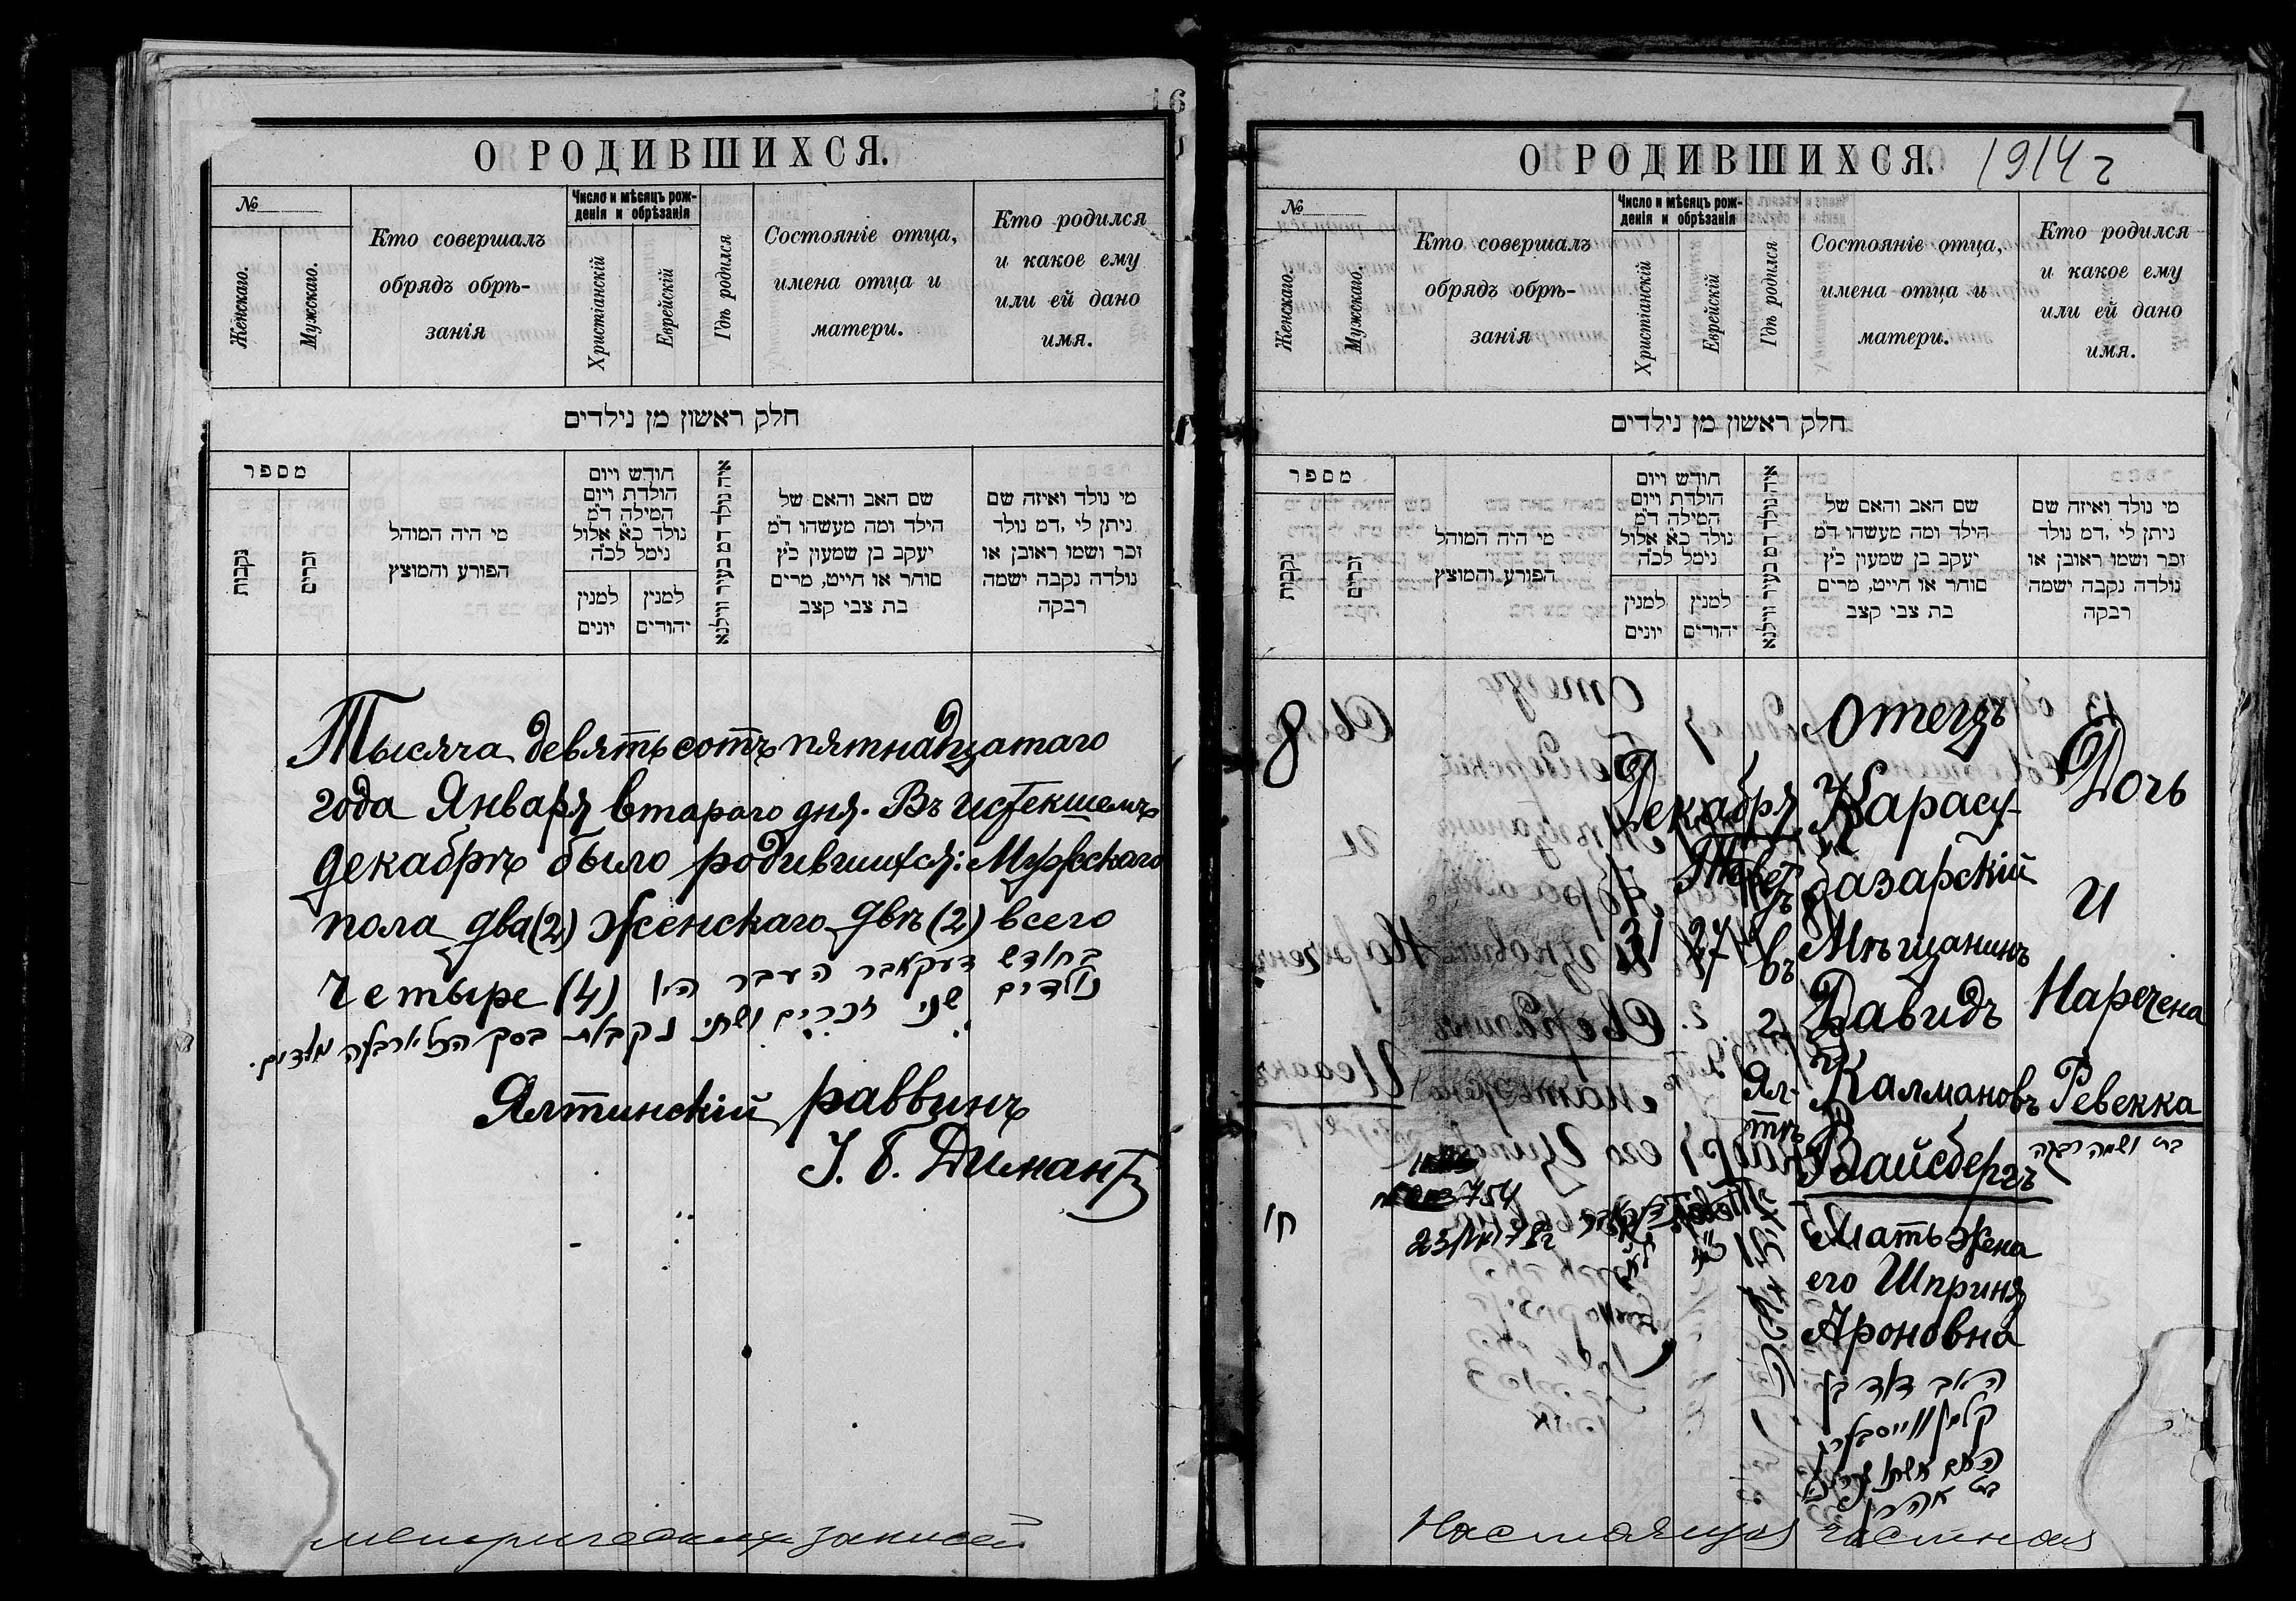 16
О РОДИВШИХСЯ.
№
Женскаго.
Мужскаго.
Кто совершалъ
обрядъ обрѣ-
занія
Число и мѣсяцъ рож-
денія и обрѣзанія
Христіанскій
Еврейскій
Гдѣ родился
Состояніе отца,
имена отца и
матери.
Кто родился
и какое ему
или ей дано
имя.
חלק ראשון מן נילדים
מספר
נקבות
זכרים
מי היה המוהל
הפורע והמוצץ
חודש ויום
הולדת ויום
המילה ד"מ
נולד כ"א אלול
נימל לכ"ה
למנין
יונים
למנין
יהודים
איה נולד דמ בעיר ווילנא
שם האב והאם של
הילד ומה מעשהו ד"מ
יעקב בן שמעון כ"ץ
סוחר או חייט, מרים
בת צבי קצב
מי נולד ואיזה שם
ניתן לי ,דמ נולד
זכר ושמו ראובן או
נולדה נקבה ישמה
רבקה
Тысяча девятьсотъ пятнадцатаго
года Января втораго дня. Въ истекшемъ
декабрѣ было родившихся: Мужскаго
пола два (2) Женскаго двѣ (2) всего
Четыре (4) בחודש דעקאבר העבר היו
נולדים שני זכרים ושתי נקבות בסך הכל ארבעה ילדים.
Ялтинскій раввинъ
І. Б. Димантъ
метрическихъ записей
О РОДИВШИХСЯ. 1914 г
№
Женскаго.
Мужскаго.
Кто совершалъ
обрядъ обрѣ-
занія
Число и мѣсяцъ рож-
денія и обрѣзанія
Христіанскій
Еврейскій
Гдѣ родился
Состояніе отца,
имена отца и
матери.
Кто родился
и какое ему
или ей дано
имя.
חלק ראשון מן נילדים
מספר
נקבות
זכרים
מי היה המוהל
הפורע והמוצץ
חודש ויום
הולדת ויום
המילה ד"מ
נולד כ"א אלול
נימל לכ"ה
למנין
יונים
למנין
יהודים
איה נולד דמ בעיר ווילנא
שם האב והאם של
הילד ומה מעשהו ד"מ
יעקב בן שמעון כ"ץ
סוחר או חייט, מרים
בת צבי קצב
מי נולד ואיזה שם
ניתן לי ,דמ נולד
זכר ושמו ראובן או
נולדה נקבה ישמה
רבקה
8
Декабря
31
Теветъ
27
въ
г.
Ял-
тѣ
Отецъ
Карасу-
базарскій
Мѣщанинъ
Давидъ
Калмановъ
Вайсбергъ
Мать жена
его Шприня
Ароновна
האב דוד בן
קלמן ווייסבערג
האם אשתו
בת אהרן
Дочь
и
Наречена
Ревекка
בת ושמה רבקה
Настоящая частная